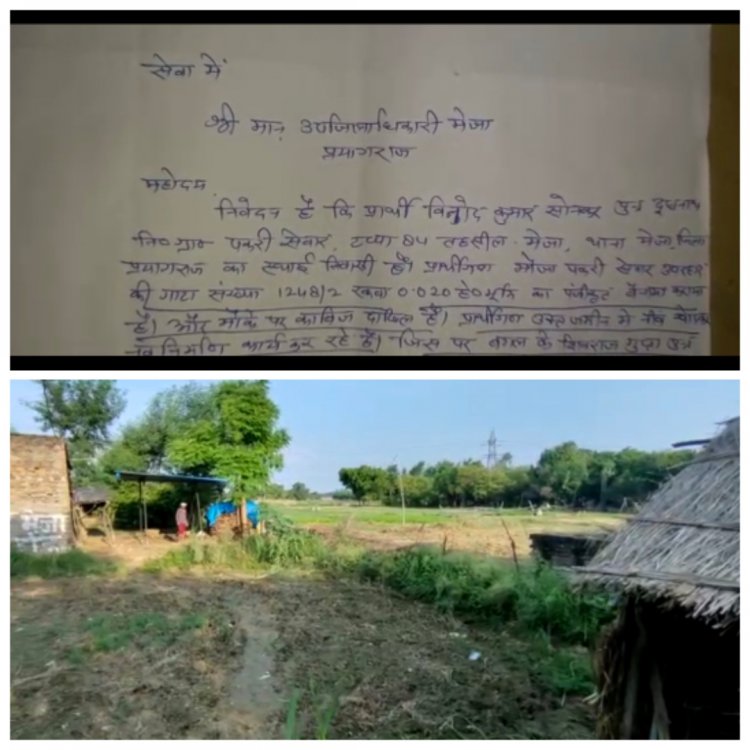 सेवा में
श्री मान् उपजिलाधिकारी मेजा
प्रयागराज
महोदय,
निवेदन है कि प्रार्थी विनोद कुमार सोनकर पुत्र दूधनाथ
नि० ग्राम पकरी सेवार, टप्पा 84 तहसील मेजा, थाना मेजा, जिला
प्रयागराज का स्थाई निवासी है। प्रार्थीगण मौजा पकरी सेवार उपरहार
की गाटा संख्या 1248/2 रकवा 0.020 हे० भूमि का पंजीकृत बैनामा कराया
है। और मौके पर काबिज दाखिल है। प्रार्थीगण उक्त जमीन में नींव खोदकर
नव निर्माण कार्य कर रहे हैं। जिस पर बगल के शिवराज गुप्ता पुत्र